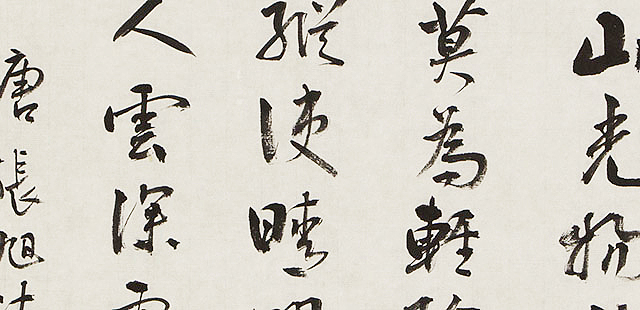 山光物
莫為輕
縱使晴明
人雲深
唐張旭